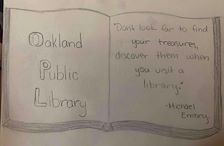 Oakland
Public
Library
"Dont look far to find
your treasures,
discover them when
you visit a
library."
-Michael
Embry